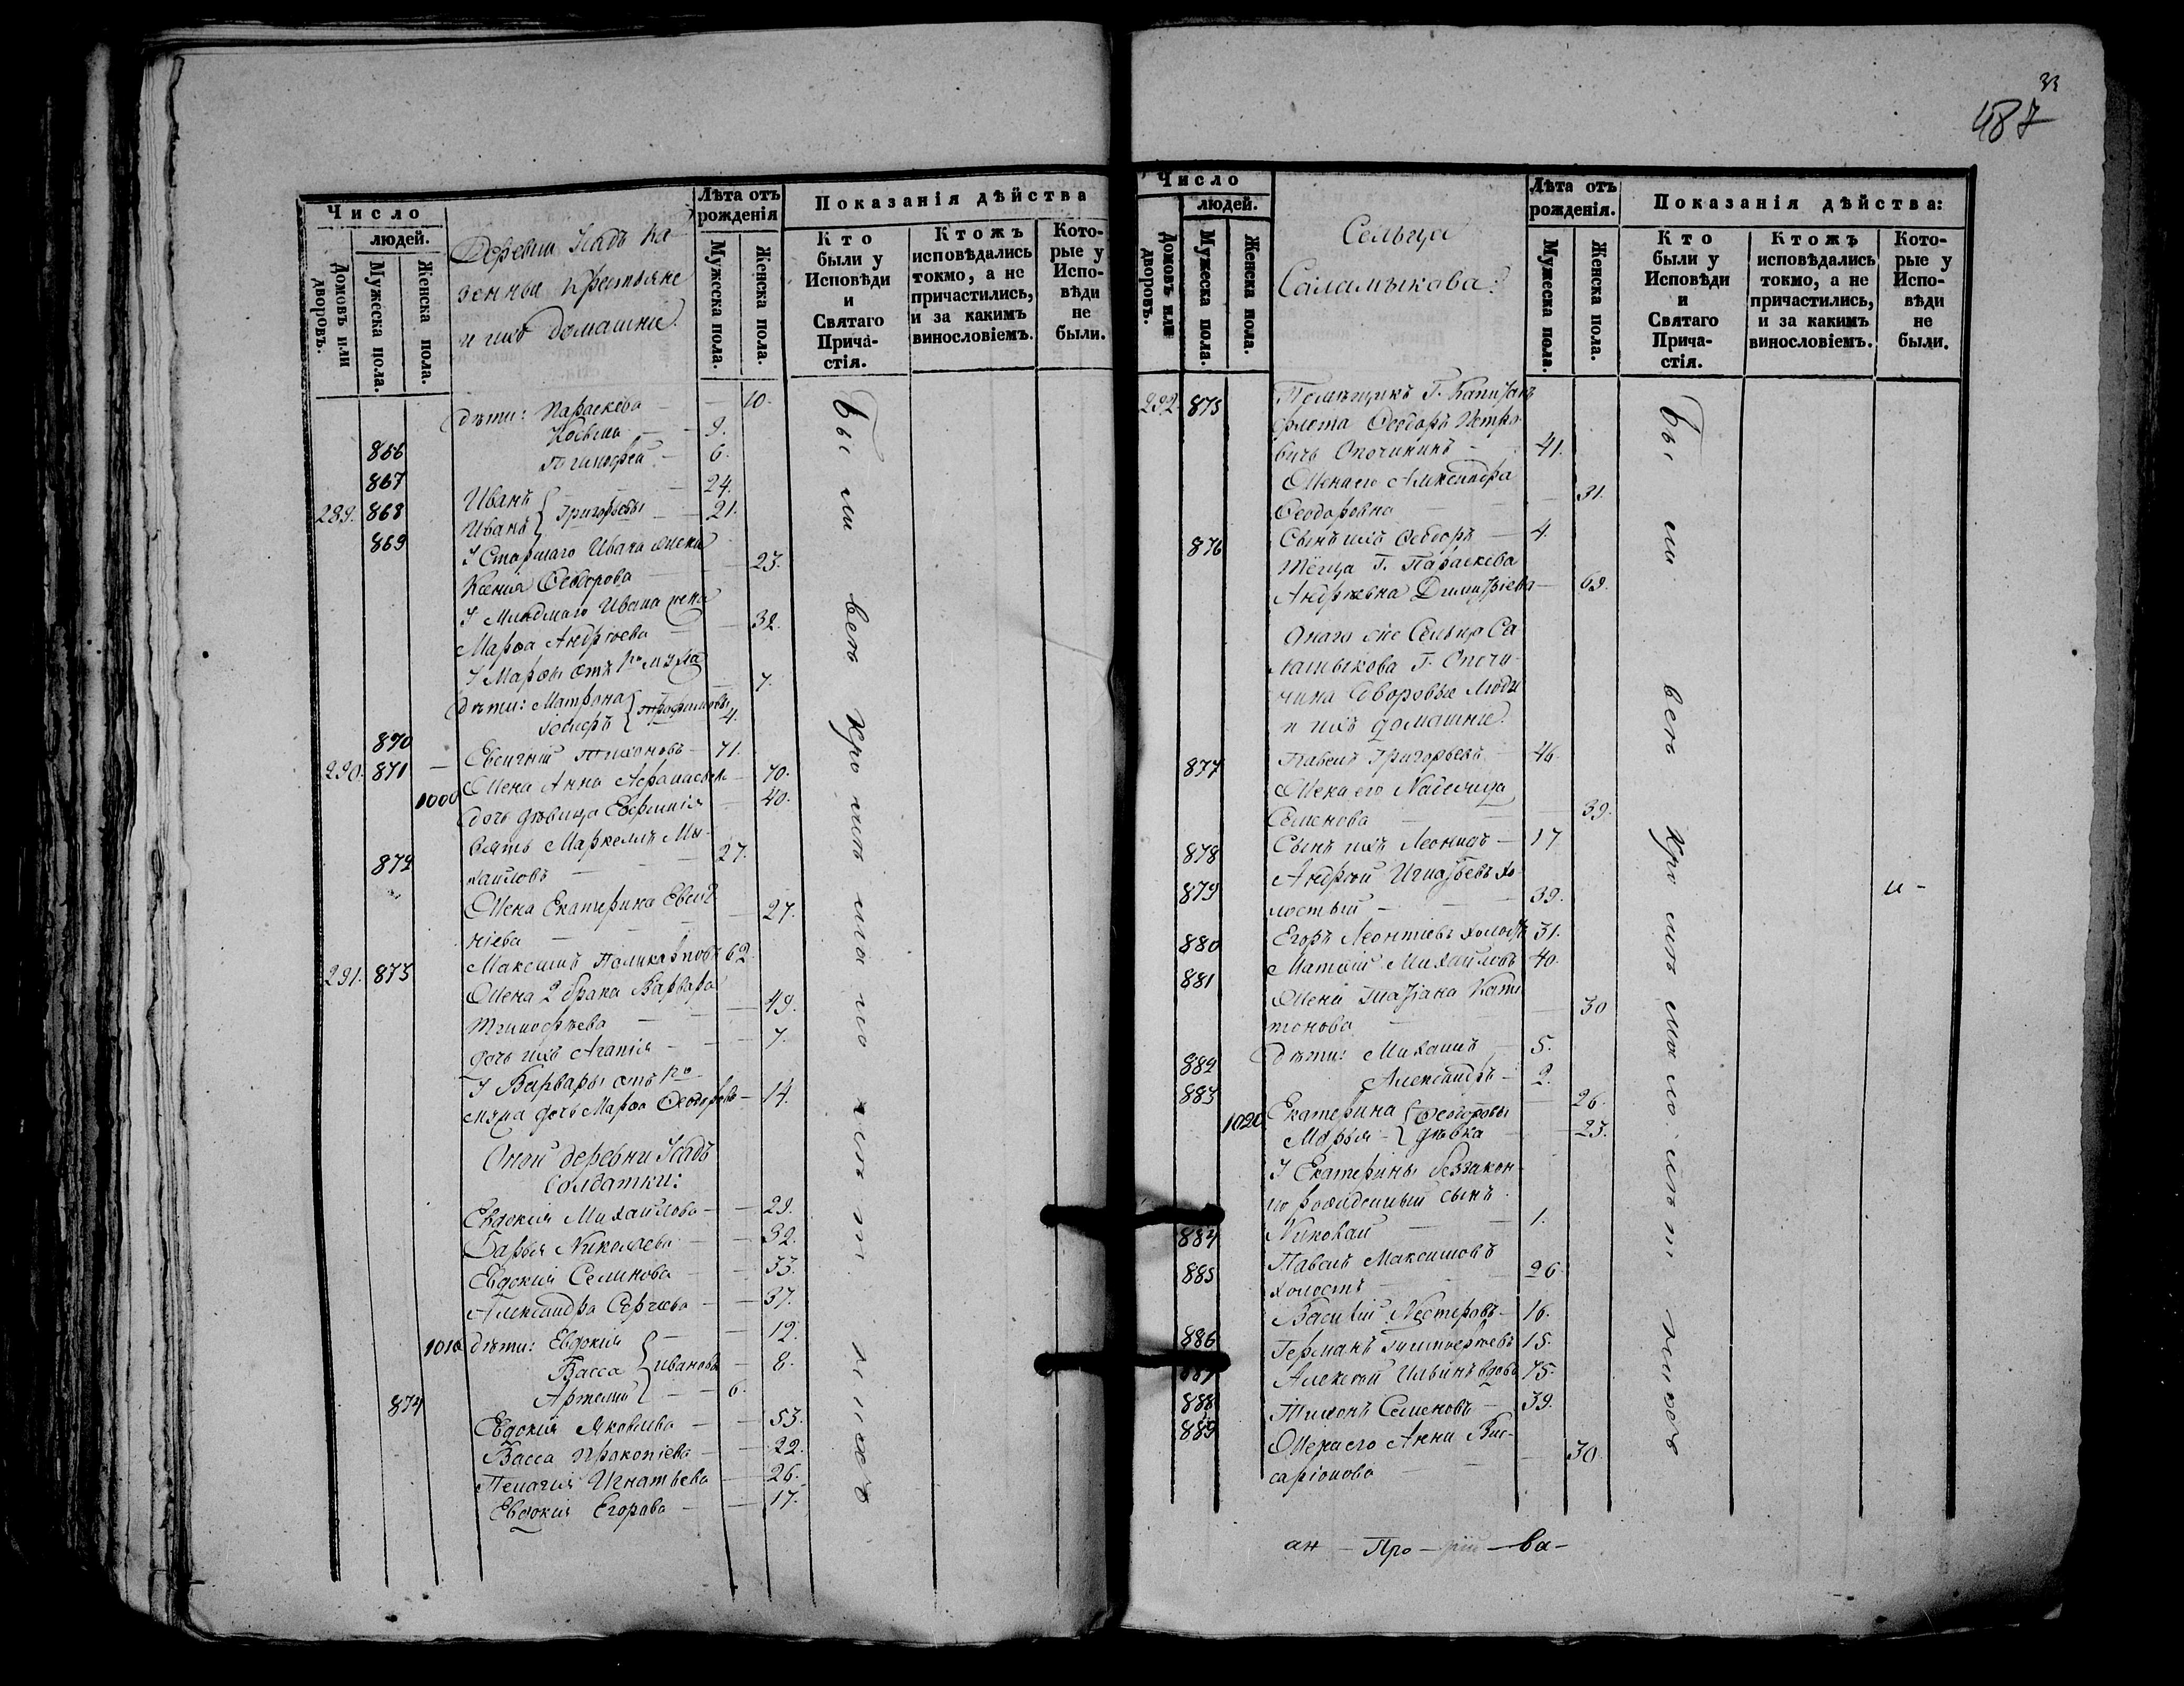 Число
людей.
Домовъ или дворовъ.
Мужеска пола.
Женска пола.
Деревни Усадъ ка
зенные крестьяне
и ихъ домашніе.
Лѣта отъ рожденія
Мужеска пола.
Женска пола.
Показанія дѣйства
Кто были у Исповѣди и Святаго Прича-стія.
Ктожъ исповѣдались токмо, а не причастились, и за какимъ винословіемъ.
Кото-рые у Испо-вѣди не были.
дѣти: Параскева — 10.
866 Косьма — 9.
867 Тимофей — 6.
289. 868 Иванъ — 24.
869 Иванъ } Григорьевы — 21.
У Старшаго Ивана жена
Ксенія Ѳедорова — 23.
У Младшаго Ивана жена
Марѳа Андрѣева — 32.
У Марѳы отъ 1го мужа
дѣти: Матрона — 7.
870 Іосифъ } Трофимовы 4.
290. 871 Евсигній Тихоновъ — 71.
1000 Жена Анна — 70.
дочь дѣвица Евфимія — 40.
зять Маркелъ Ми-
872 хаиловъ — 27.
Жена Екатерина Евсиг
ніева — 27.
291. 873 Максимъ Поликарповъ 62.
Жена 2 брака Варвара
Тимофѣева — 49.
дочь ихъ Агапія — 7.
У Варвары отъ 1го
мужа дочь Марѳа Ѳеодорова — 14.
Оной деревни Усадъ
Солдатки:
Евдокія Михайлова — 29.
Дарья Николаева — 32.
Евдокія Семенова — 33.
Александра Сергѣева — 37.
1010 дѣти: Евдокія — 12.
Васса } Ивановы — 8.
874 Артемій — 6.
Евдокія Яковлева — 53.
Васса Прокопіева — 22.
Пелагія Игнатьева — 26.
Евдокія Егорова — 17.
Бы ли
33
487
Число
людей.
Домовъ или дворовъ.
Мужеска пола.
Женска пола.
Сельца
Саламыкова:
Лѣта отъ рожденія.
Мужеска пола.
Женска пола.
Показанія дѣйства:
Кто были у Исповѣди и Святаго Прича-стія.
Ктожъ исповѣдались токмо, а не причастились, и за какимъ винословіемъ.
Кото-рые у Испо-вѣди не были.
292. 875 Помѣщикъ Г. Капитанъ
флота Ѳеодоръ Петро
вичь Опочининъ — 41.
Жена его Александра
Ѳеодоровна — 31.
876 Сынъ ихъ Ѳеодоръ — 4.
Тёща Г. Параскева
Андрѣевна Димитріева — 69.
Онаго же Сельца Са
ламыкова Г. Опочи-
нина дворовые люди
и ихъ домашніе.
877 Павелъ Григорьевъ — 46.
Жена его Надежда
Семенова — 39.
878 Сынъ ихъ Леонидъ — 17
879 Андрей Игнатьевъ хо-
лостый — 39. —
880 Егоръ Леонтіевъ холостъ 31.
881 Матвій Михайловъ 40.
Жена Татіана
30
882 дѣти: Михаилъ — 5.
883 Александръ — 2.
1020 Екатерина — 26.
Марья } Ѳеодоровы дѣвка — 23.
У Екатерины беззакон-
но рожденный сынъ
884 Николай — 1.
885 Павелъ Максимовъ
холостъ — 26
886 Василій Нестеровъ — 16.
Германъ 15.
Алексѣй Ильинъ вдовъ 75.
888 Тихонъ Семеновъ — 39.
889 Жена его Анна Вис-
саріонова — 30.
Бы ли
ан — Про — — ва —